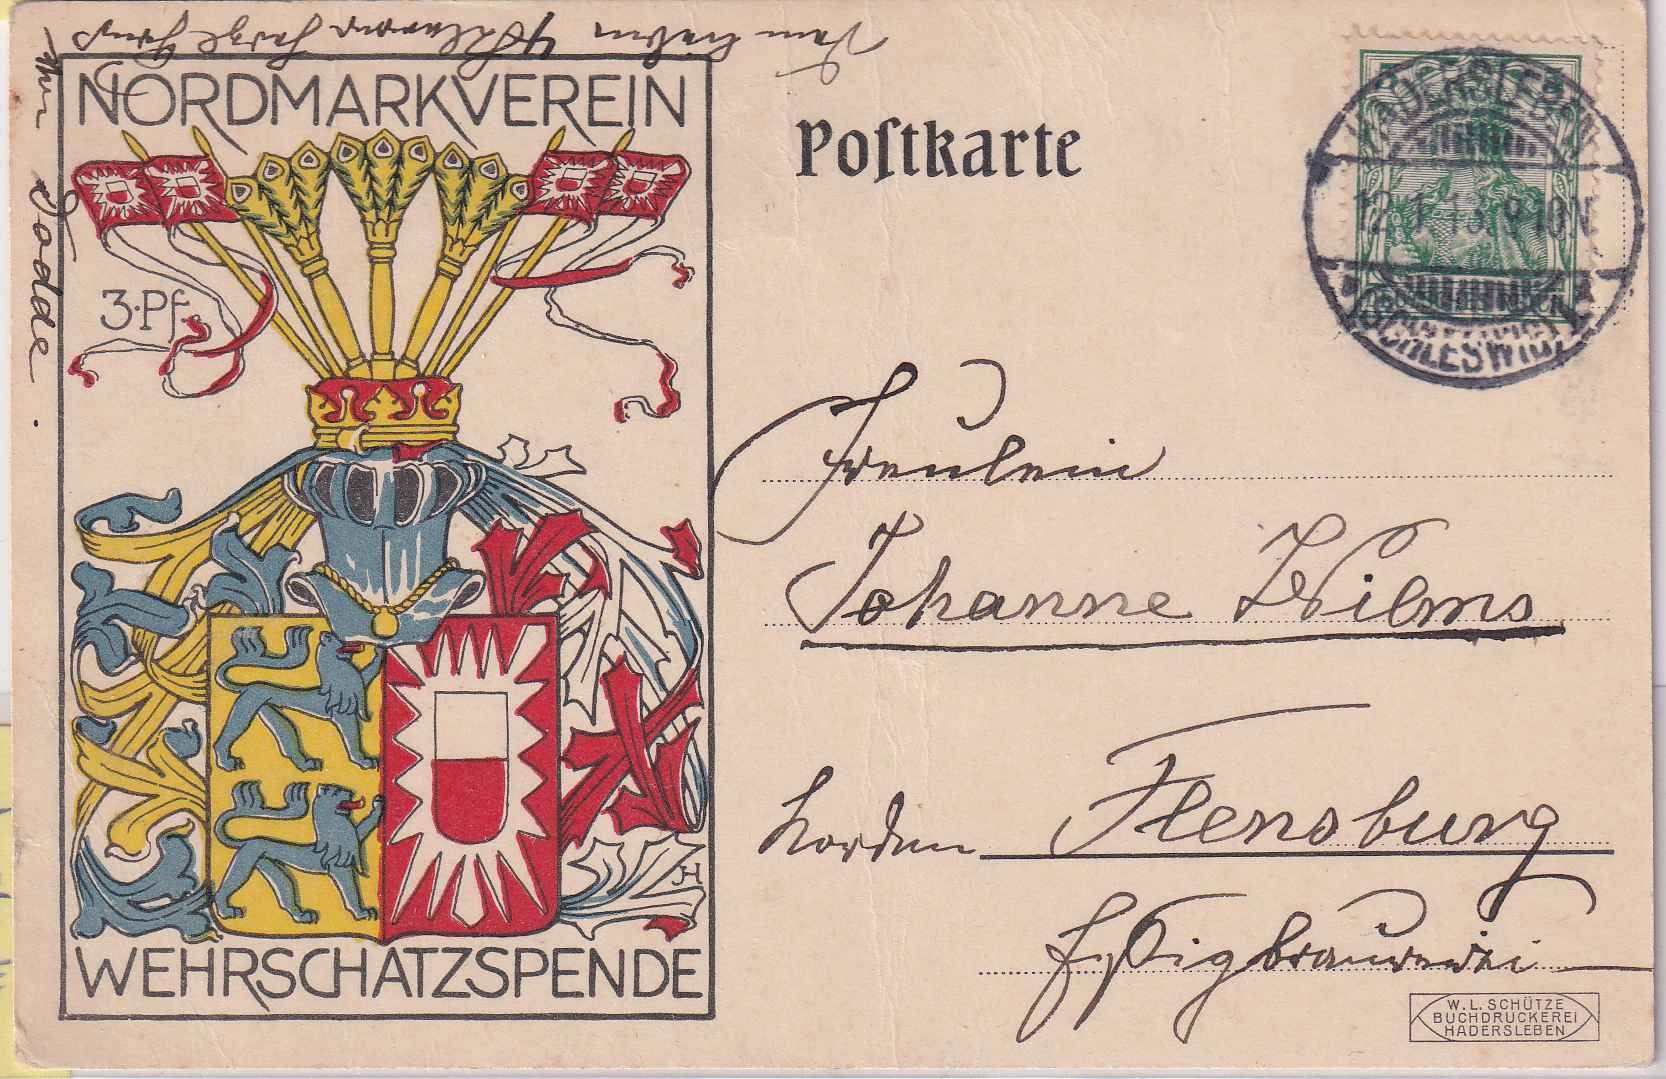 NORDMARKVEREIN
3. Pf.
WEHRSCHATZSPENDE
JH
Postkarte
HADERSLEBEN
12.1.13. 9-10N
SCHLESWIG
Fräulein
Johanne Wilms
Norden Flensburg
Essigbrauerei
W. L. SCHÜTZE
BUCHDRUCKEREI
HADERSLEBEN